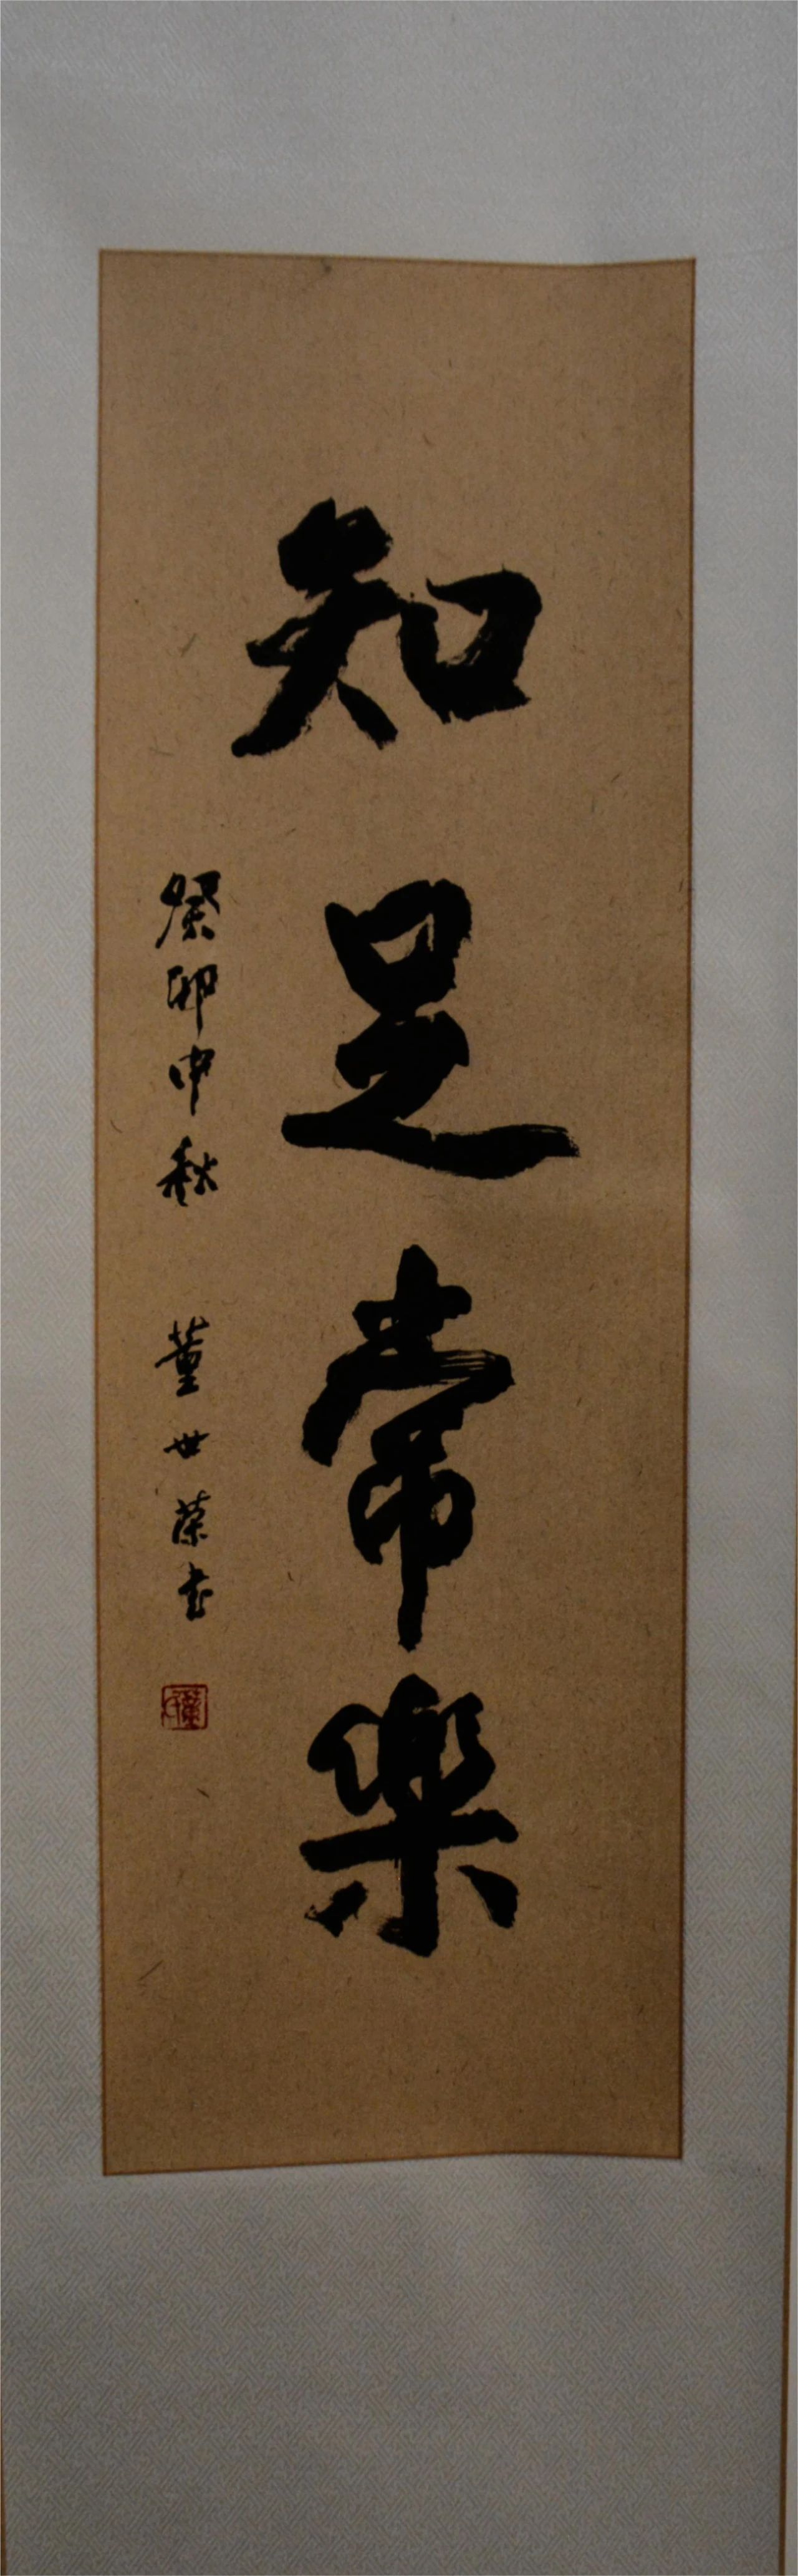 知足常樂
癸卯中秋 董世荣书